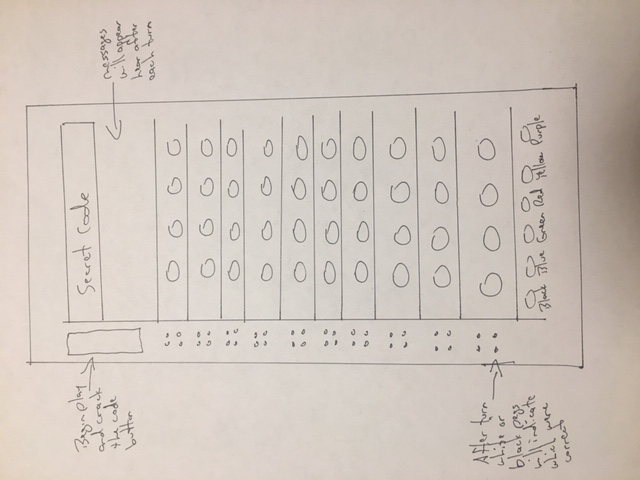 Begin play
and crack
the code
button
Secret Code
messages
will appear
hear after
each turn
After turn
white or
black pegs
will indicate
which were
correct
Black Blue Green Red Yellow Purple